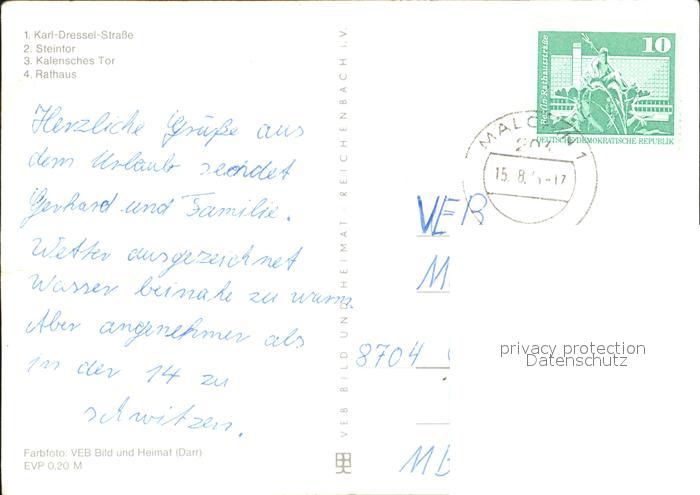 1. Karl-Dressel-Straße
2. Steintor
3. Kalensches Tor
4. Rathaus
Herzliche Grüße aus
dem Urlaub sendet
Gerhard und Familie.
Wetter ausgezeichnet
Wasser beinahe zu warm.
Aber angenehmer als
in der 14 zu
schwitzen.
Farbfoto: VEB Bild und Heimat (Darr)
EVP 0,20 M
VEB BILD UND HEIMAT REICHENBACH I.V.
10
Berlin-Rathausstraße
DEUTSCHE DEMOKRATISCHE REPUBLIK
MALCHIN 1
15. 8.
-17
VEB
M
8704
privacy protection
Datenschutz